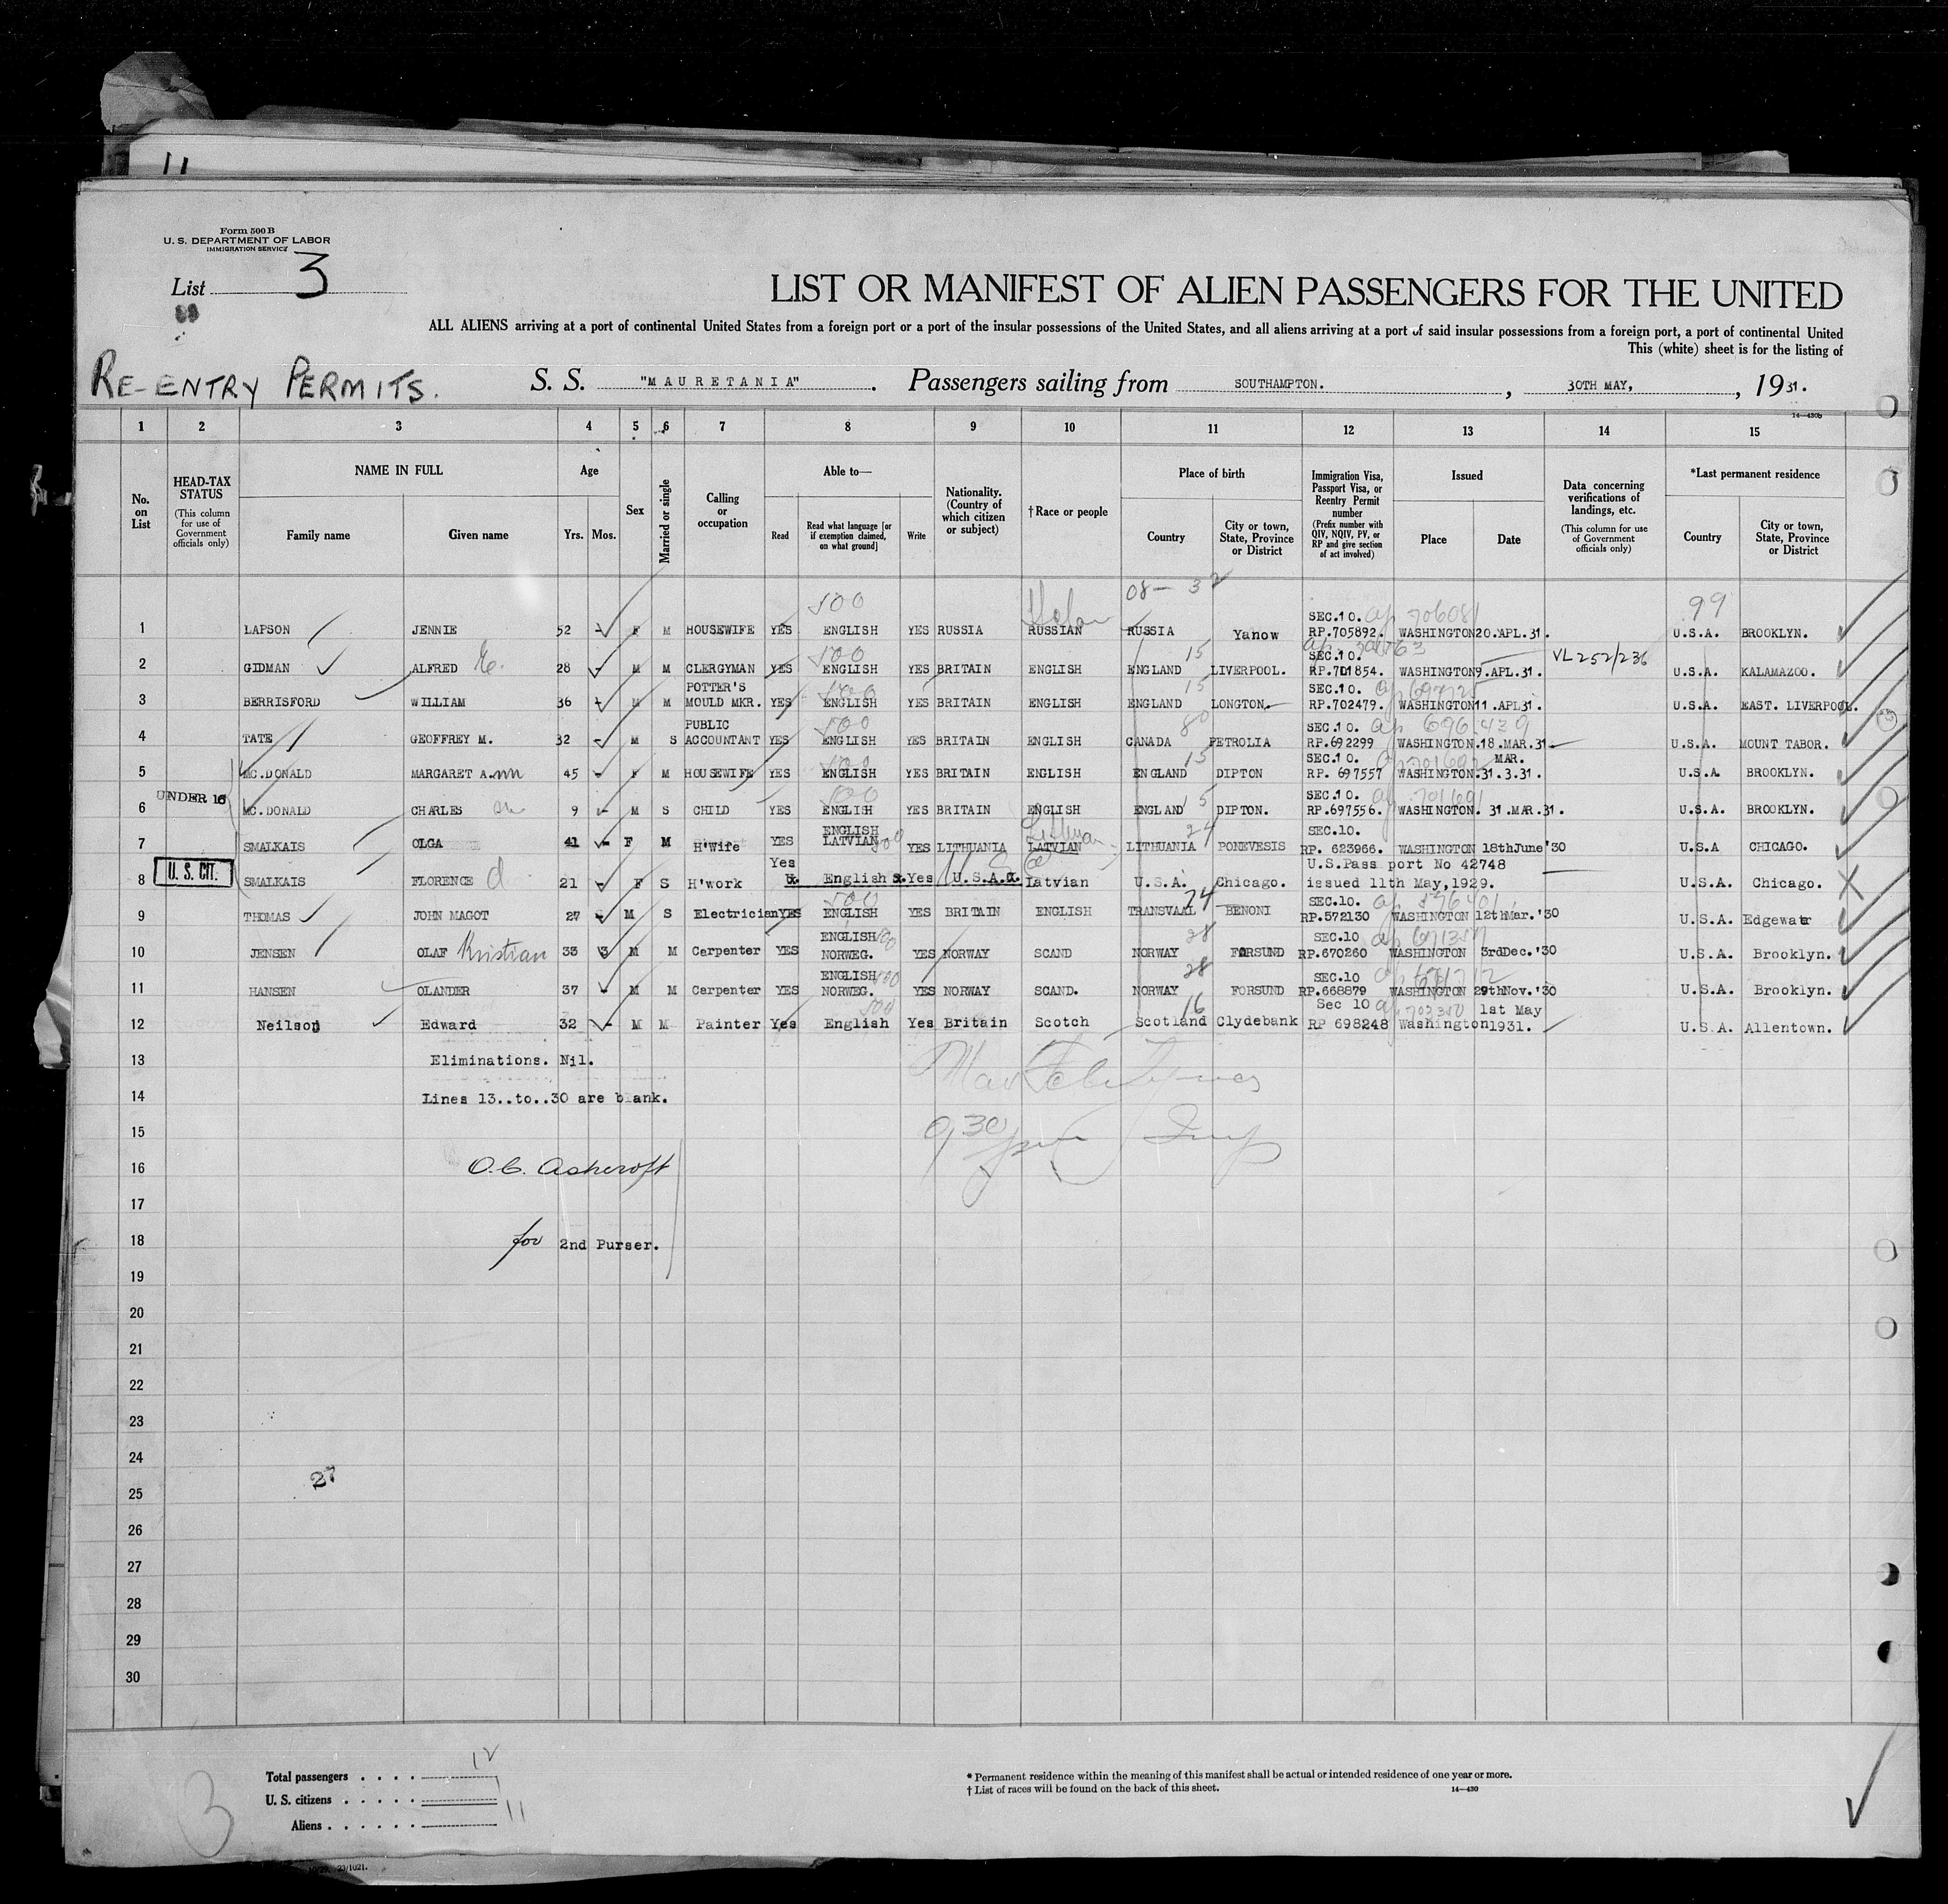 11
Form 500 B
U. S. DEPARTMENT OF LABOR
IMMIGRATION SERVICE
List 3
LIST OR MANIFEST OF ALIEN PASSENGERS FOR THE UNITED
ALL ALIENS arriving at a port of continental United States from a foreign port or a port of the insular possessions of the United States, and all aliens arriving at a port of said insular possessions from a foreign port, a port of continental United
This (white) sheet is for the listing of
RE-ENTRY PERMITS. S. S. "MAURETANIA". Passengers sailing from SOUTHAMPTON., 30TH MAY, , 1931.
14—430b
1 2 3 4 5 6 7 8 9 10 11 12 13 14 15
No. on List
HEAD-TAX STATUS
(This column for use of Government officials only)
NAME IN FULL
Family name
Given name
Age
Yrs. Mos.
Sex
Married or single
Calling or occupation
Able to—
Read
Read what language [or if exemption claimed, on what ground]
Write
Nationality. (Country of which citizen or subject)
†Race or people
Place of birth
Country
City or town, State, Province or District
Immigration Visa, Passport Visa, or Reentry Permit number
(Prefix number with QIV, NQIV, PV, or RP and give section of act involved)
Issued
Place
Date
Data concerning verifications of landings, etc.
(This column for use of Government officials only)
*Last permanent residence
Country
City or town, State, Province or District
08— 32
500 99
SEC.10. ap 706081
1 LAPSON JENNIE 52 - F M HOUSEWIFE YES ENGLISH YES RUSSIA RUSSIAN RUSSIA Yanow RP.705892. WASHINGTON 20.APL.31. U.S.A. BROOKLYN.
500 15 SEC.10. VL 252/236
2 GIDMAN ALFRED E. 28 - M M CLERGYMAN YES ENGLISH YES BRITAIN ENGLISH ENGLAND LIVERPOOL. RP.701854. WASHINGTON 9.APL.31. U.S.A. KALAMAZOO.
POTTER'S 500 15 SEC.10.
3 BERRISFORD WILLIAM 36 - M M MOULD MKR. YES ENGLISH YES BRITAIN ENGLISH ENGLAND LONGTON. RP.702479. WASHINGTON 11.APL31. U.S.A. EAST. LIVERPOOL.
PUBLIC 500 80 SEC.10. ap 696439
4 TATE GEOFFREY M. 32 - M S ACCOUNTANT YES ENGLISH YES BRITAIN ENGLISH CANADA PETROLIA RP.692299 WASHINGTON. 18.MAR.31. U.S.A. MOUNT TABOR.
500 15 SEC.10. MAR.
5 MC.DONALD MARGARET A.nn 45 - F M HOUSEWIFE YES ENGLISH YES BRITAIN ENGLISH ENGLAND DIPTON RP. 697557 WASHINGTON. 31.3.31. U.S.A. BROOKLYN.
UNDER 16
500 15 SEC.10. ap 701691
6 MC.DONALD CHARLES 9 - M S CHILD YES ENGLISH YES BRITAIN ENGLISH ENGLAND DIPTON. RP.697556. WASHINGTON. 31.MAR.31. U.S.A. BROOKLYN.
ENGLISH Lithuan 24 SEC.10.
7 SMALKAIS OLGA 41 - F M H'Wife YES LATVIAN 500 YES LITHUANIA LATVIAN LITHUANIA PONEVESIS RP. 623966. WASHINGTON 18thJune'30 U.S.A CHICAGO.
U. S. CIT.
Yes U.S. U.S.Pass port No 42748
8 SMALKAIS FLORENCE d 21 - F S H'work English Yes U.S.A. Latvian U.S.A. Chicago. issued 11th May,1929. U.S.A. Chicago. X
500 24 SEC.10.
9 THOMAS JOHN MAGOT 27 - M S Electrician YES ENGLISH YES BRITAIN ENGLISH TRANSVAAL BENONI RP.572130 WASHINGTON 12thMar.'30 U.S.A. Edgewater
ENGLISH 500 28 SEC.10
10 JENSEN OLAF Kristian 33 3 M M Carpenter YES NORWEG. YES NORWAY SCAND NORWAY FORSUND RP.670260 WASHINGTON 3rdDec.'30 U.S.A. Brooklyn.
ENGLISH 500 28 SEC.10
11 HANSEN OLANDER 37 - M M Carpenter YES NORWEG. YES NORWAY SCAND. NORWAY FORSUND RP.668879 WASHINGTON 29thNov.'30 U.S.A. Brooklyn.
500 16 Sec 10 1st May
12 Neilson Edward 32 - M M Painter Yes English Yes Britain Scotch Scotland Clydebank RP 698248 Washington 1931. U.S.A. Allentown.
13 Eliminations. Nil.
14 Lines 13..to..30 are blank.
15 9 30
16 O.C. Ashcroft
17
18 for 2nd Purser.
19
20
21
22
23
24
27
25
26
27
28
29
30
3
Total passengers . . . . 12
U. S. citizens . . . . . 1
Aliens . . . . . . 11
* Permanent residence within the meaning of this manifest shall be actual or intended residence of one year or more.
† List of races will be found on the back of this sheet. 14—430